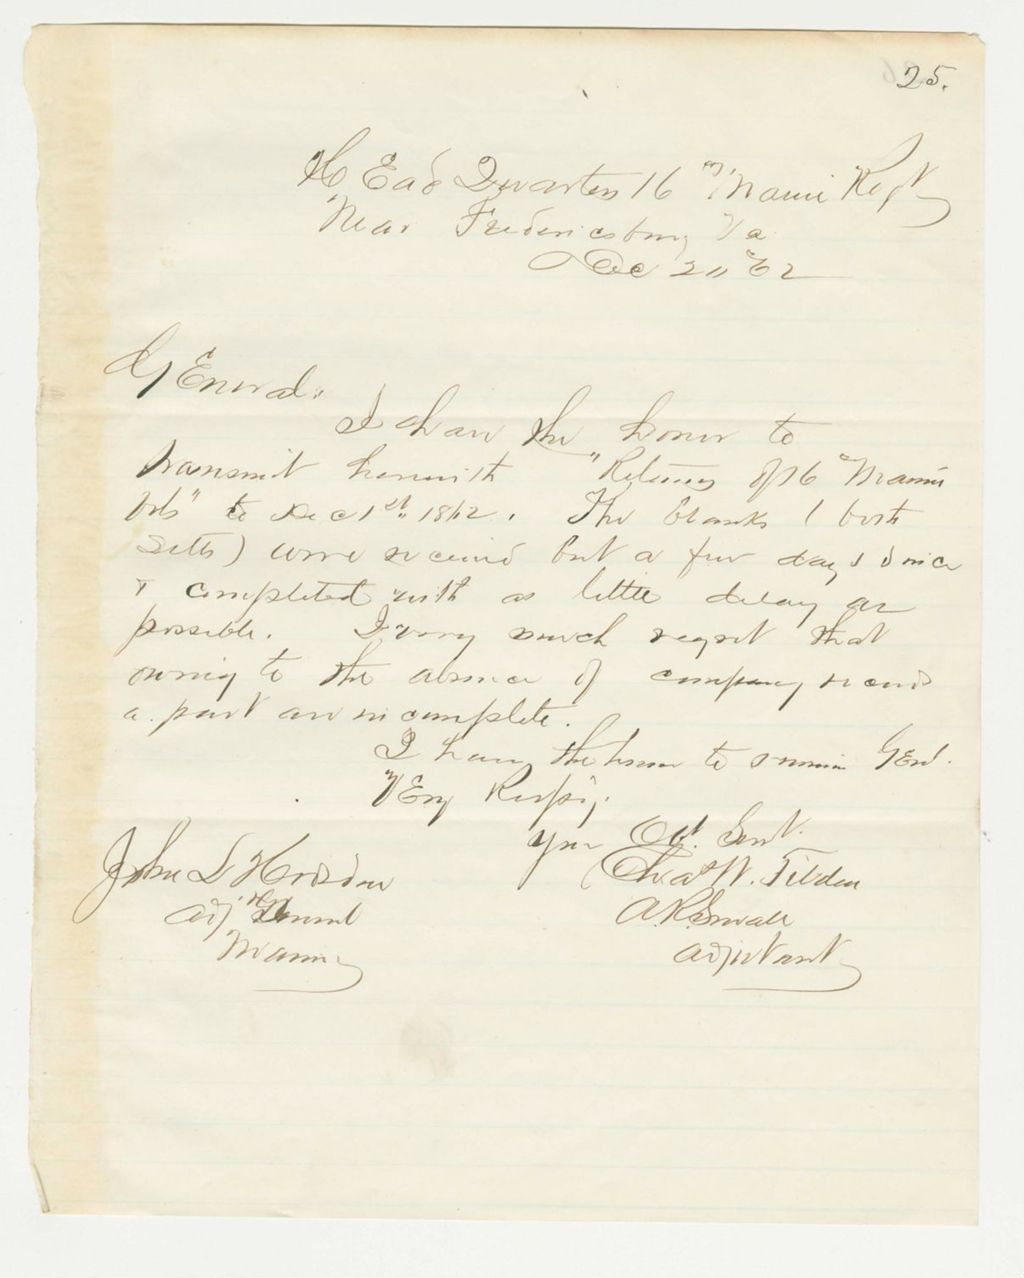 25.
Head Quarters 16" Maine Regt
Near Fredericsburg Va
Dec 20" 62
General:
I have the honor to
transmit herewith "Returns of 16" Maine
Vols" to Dec 1st, 1862. The blanks (both
setts) were received but a few days since
& completed with as little delay as
possible. I very much regret that
owing to the absence of company records
a part are incomplete.
I have the honor to remain Genl.
Very Respy.
Your Obt. Servt.
Chas W. Tilden
A.R. Small
Adjutant
John L Hodsdon
Adj General
Maine